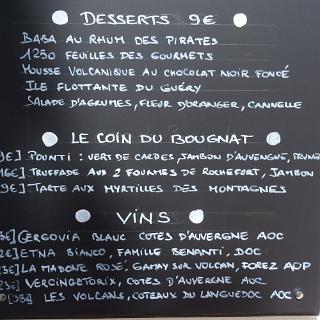 DESSERTS 9€
BABA AU RHUM DES PIRATES
1250 FEUILLES DES GOURMETS
MOUSSE VOLCANIQUE AU CHOCOLAT NOIR FONCÉ
ILE FLOTTANTE DU GUÉRY
SALADE D'AGRUMES, FLEUR D'ORANGER, CANNELLE
LE COIN DU BOUGNAT
9€] POUNTI : VERT DE CARDES, JAMBON D'AUVERGNE, PRUNE
16€] TRUFFADE AUX 2 FOURMES DE ROCHEFORT, JAMBON
9€] TARTE AUX MYRTILLES DES MONTAGNES
VINS
€] GERGOVIA BLANC COTES D'AUVERGNE AOC
€] ETNA BIANCO, FAMILLE BENANTI, DOC
€] LA MADONE ROSÉ, GAMAY SUR VOLCAN, FOREZ AOP
3€] VERCINGETORIX, COTES D'AUVERGNE AOC
LES VOLCANS, COTEAUX DU LANGUEDOC AOC